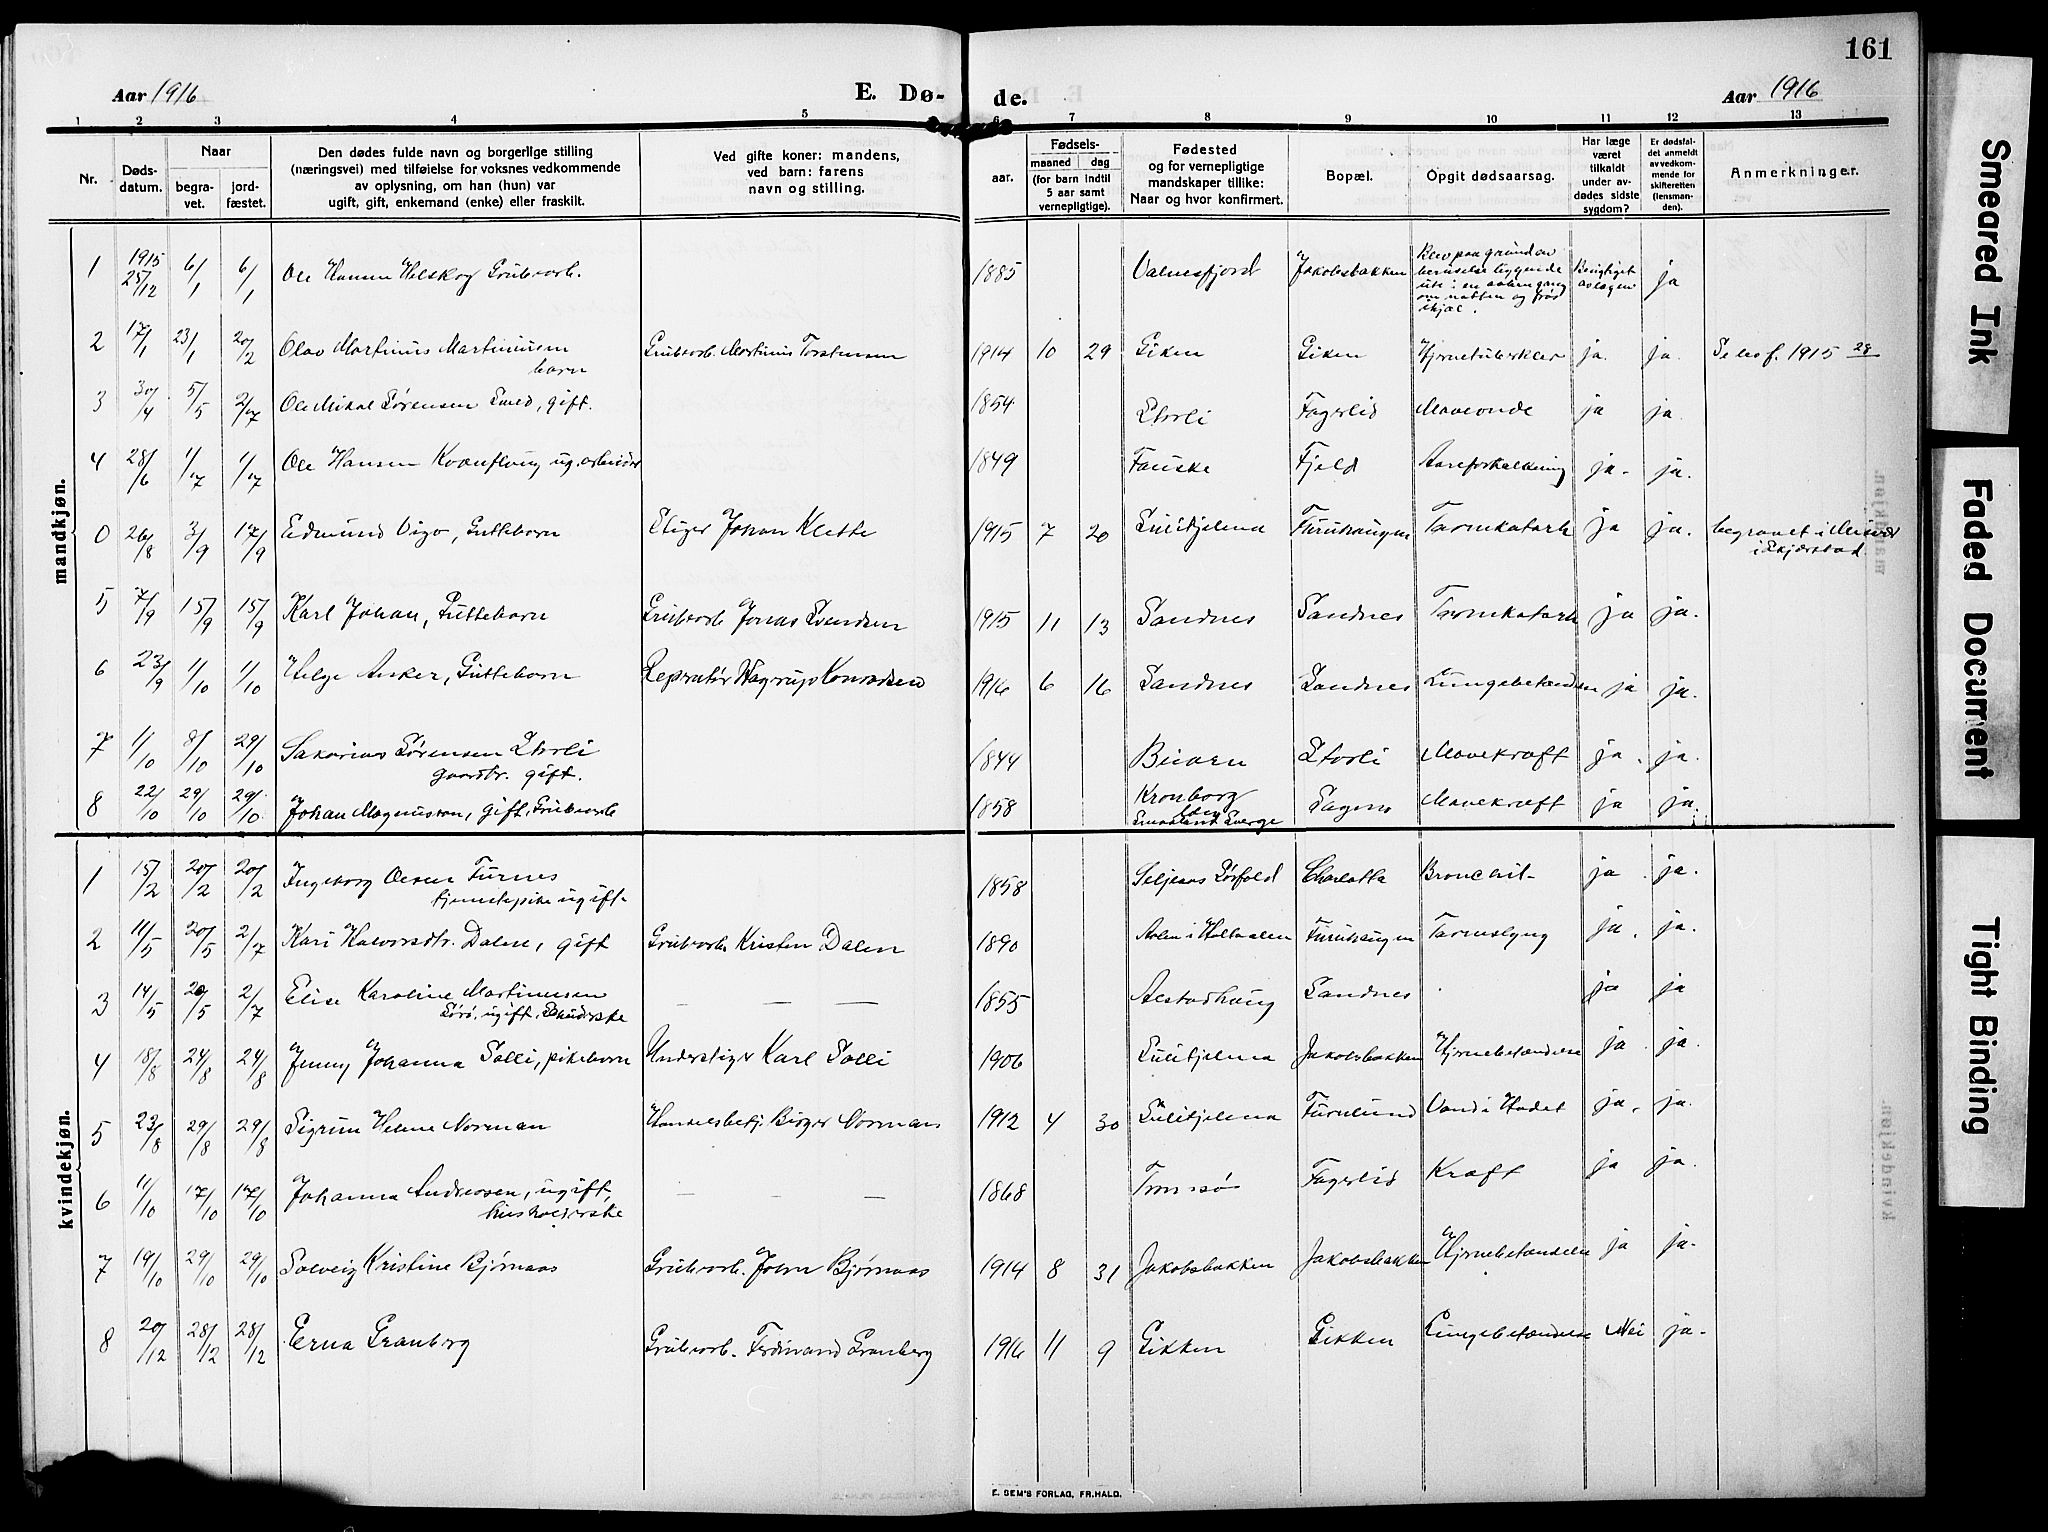 161
Aar 1916
E. Dø-
de.
Aar 1916
1 2 3 4 5 6 7 8 9 10 11 12 13
Nr.
Døds-
datum.
Naar
begra-
vet.
jord-
fæstet.
Den dødes fulde navn og borgerlige stilling
(næringsvei) med tilføielse for voksnes vedkommende
av oplysning, om han (hun) var
ugift, gift, enkemand (enke) eller fraskilt.
Ved gifte koner: mandens,
ved barn: farens
navn og stilling.
Fødsels-
aar.
maaned dag
(for barn indtil
5 aar samt
vernepligtige).
Fødested
og for vernepligtige
mandskaper tillike:
Naar og hvor konfirmert.
Bopæl.
Opgit dødsaarsag.
Har læge
været
tilkaldt
under av-
dødes sidste
sygdom?
Er dødsfal-
det anmeldt
av vedkom-
mende for
skifteretten
(lensman-
den).
Anmerkninger.
mandkjøn.
1 1915 25/12 6/1 6/1 Ole Hansen Helskog Grubearb. 1885 Valnesfjord Jakobsbakken Blev paa grund av
beruselse liggende
ute i en aaben grue
om natten og frøs
ihjæl. Besigtiget
av lægen ja
2 17/1 23/1 20/2 Olav Martinus Martinussen
barn Grubearb. Martinus Torstensen 1914 10 29 Giken Giken Hjernetuberkler ja. ja. Se lnof. 1915 28
3 30/4 5/5 2/07 Ole Mikal Sørensen Smed, gift. 1854 Storli Fagerlid Maveonde ja ja.
4 28/6 1/07 1/07 Ole Hansen Kvænflaug ug. arbeider 1849 Fauske Fjeld Aareforkalkning ja. ja.
0 26/8 3/9 17/9 Edmund Vigo, Guttebarn Stiger Johan Klette 1915 7 20 Sulitjelma Furuhaugen Tarmkatarh ja ja. begravet i
i Skjerstad.
5 7/9 15/9 15/9 Karl Johan, Guttebarn Grubearb Jonas Svendsen 1915 11 13 Sandnes Sandnes Tarmkatarh ja ja.
6 23/9 1/10 1/10 Helge Anker, Guttebarn Reparatør Hagrup Konradsen 1916 6 16 Sandnes Sandnes Lungebetændelse ja ja.
7 1/10 8/10 29/10 Sakarias Sørensen Storli
gaardbr. gift. 1844 Beiarn Storli Mavekræft ja. ja.
8 22/10 29/10 29/10 Johan Magnusson, gift, Grubearb 1858 Kronborg
Smaaland Sverge Sagmo Mavekræft ja ja.
kvindekjøn.
1 15/2 20/2 20/2 Ingeborg Olsen Furnes
tjenestepike ugift. 1858 Seljeaas Sørfold Charlotta Bronchit- ja. ja.
2 11/5 20/5 2/7 Kari Halvorsdtr. Dalen, gift Grubearb. Kristen Dalen 1890 Aalen i Holtaalen Furuhaugen Tarmslyng ja. ja.
3 14/5 20/5 2/7 Elise Karoline Martinussen
Sørø, ugift, — — — 1855 Alstadhaug Sandnes ja ja
4 18/8 24/8 24/8 Jenny Johanna Solli, pikebarn Understiger Karl Solli 1906 Sulitjelma Jakobsbakken Hjernebetændelse ja. ja.
5 23/8 29/8 29/8 Sigrun Helene Norman Handelsbetj. Birger Norman 1912 4 30 Sulitjelma Furulund Vand i Hodet ja. ja.
6 11/10 17/10 17/10 Johanna Andreasen, ugift,
husholderske — — — 1868 Tromsø Fagerlid Kræft ja ja.
7 19/10 29/10 29/10 Solveig Kristine Bjørnaas Grubearb. Johan Bjørnaas 1914 8 31 Jakobsbakken Jakobsbakken Hjernebetændelse ja ja.
8 20/12 28/12 28/12 Erna Granberg Grubearb. Ferdinand Granberg 1916 11 9 Gikken Gikken Lungebetændelse Nei ja.
E. SEM'S FORLAG, FR.HALD.
Smeared Ink
Faded Document
Tight Binding